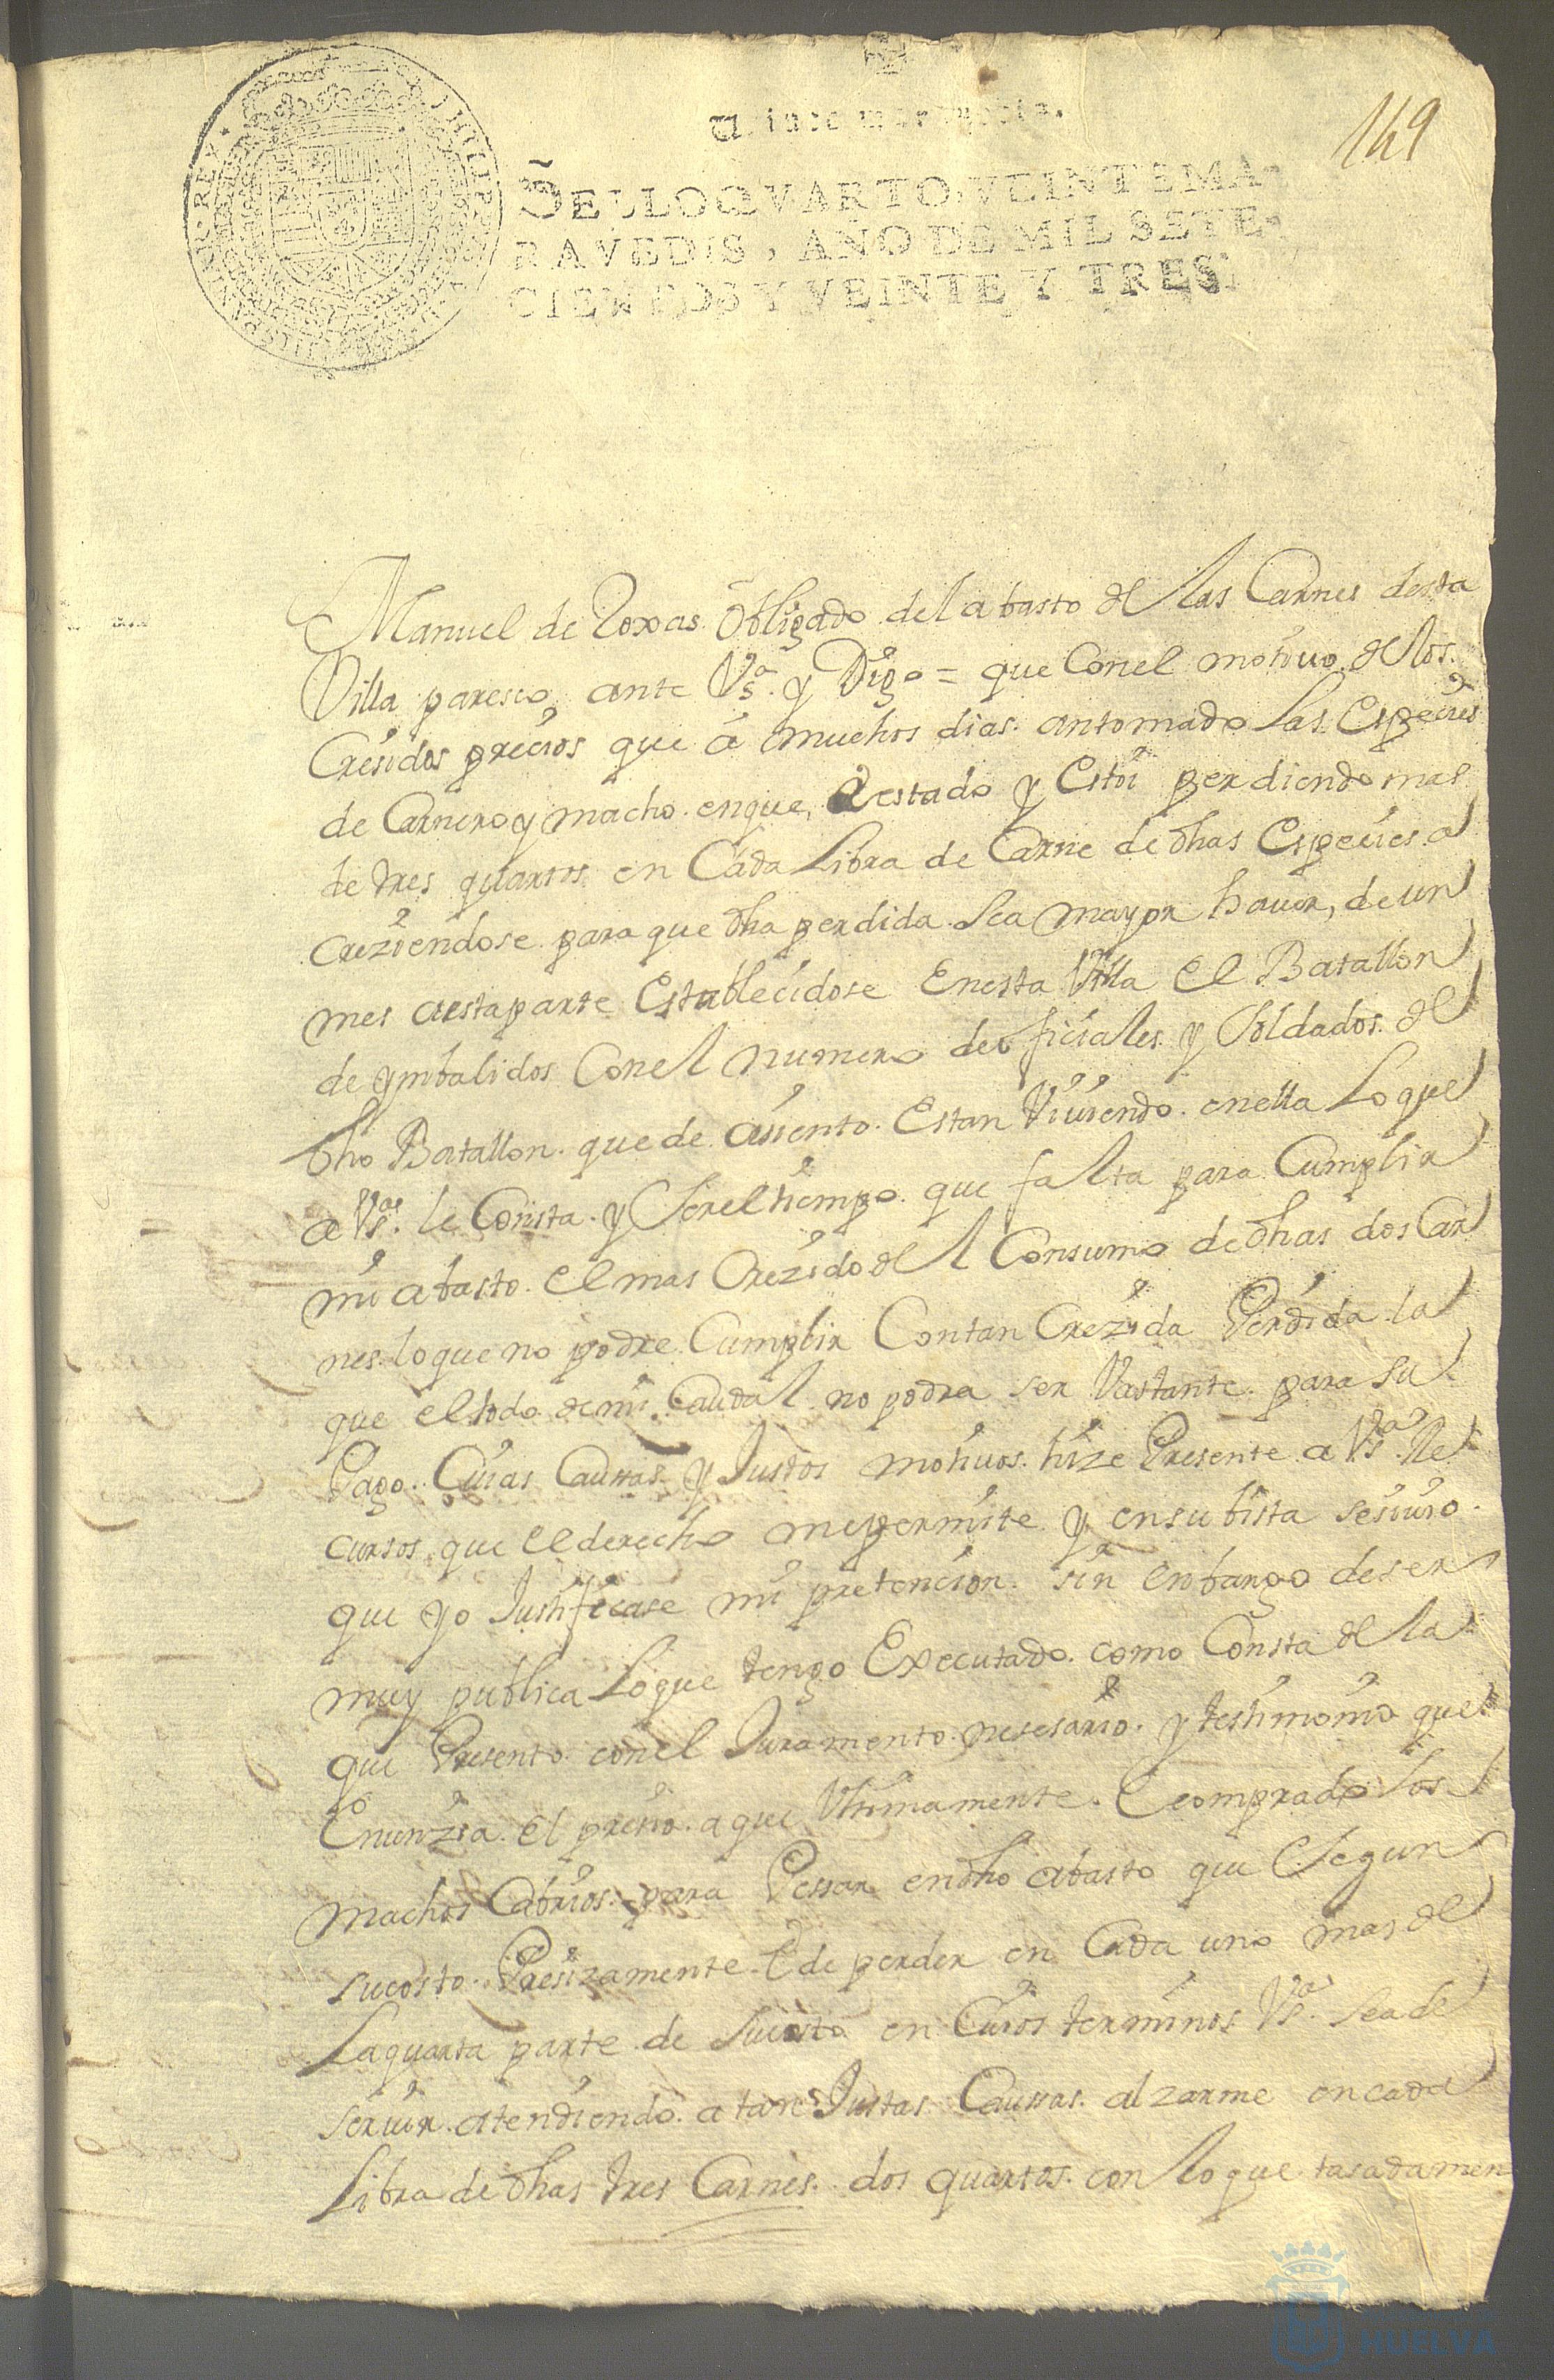 149
SELLO QVARTO, VEINTE MA-
RAVEDIS, AÑO DE MIL SETE-
CIENTOS Y VEINTE Y TRES.
Manuel de Roxas Obligado del abasto de las Carnes desta
Villa paresco ante Vsª. y Digo = que Conel motiuo de los
Cresidos precios que â muchos dias. antomado Las Especies
de Carnero y macho. enque, Aestado y Estoi perdiendo mas
de tres quartos en Cada Libra de Carne de dhas Especies a
creziendose. para que dha perdida. sea mayor hauer, de un
mes aestaparte Establecidose Enesta Villa El Batallon
de ymbalidos Conel numero de oficiales y Soldados. de
dho Batallon. que de assiento. Estan Viuiendo. enella Lo que
a Vsª. le Consta. y Ser el tiempo. que falta para Cumplir
mi abasto. El mas Crezido del Consumo de dhas dos Car
nes. lo que no podre Cumplir Contan Crezida Perdida. la
que el todo. de mi. Caudal. no podra ser Vastante. para su
Pago. Cuias Caussas y Justos motiuos. hize Presente a Vsª. Re
cursos que el derecho mepermite y ensu bista sesiruio.
que yo Justificase mi pretencion. sin enbargo deser
muy publica Loque tengo Executado. como Consta de la
que Presento conel Juramento nesesario. y testimonio que
Enunzia. el presio. a que Vltimamente. E comprado los
machos Cabrios. para Pessar endho abasto que Segun
sucosto. Presizamente. E de perder en Cada uno mas de
Laquarta parte de sucosto en Cuios terminos Vsª. seade
seruir. atendiendo. a tan Justas Caussas. alzarme encada
Libra de dhas tres Carnes. dos quartos. con lo que tasadamen
HUELVA